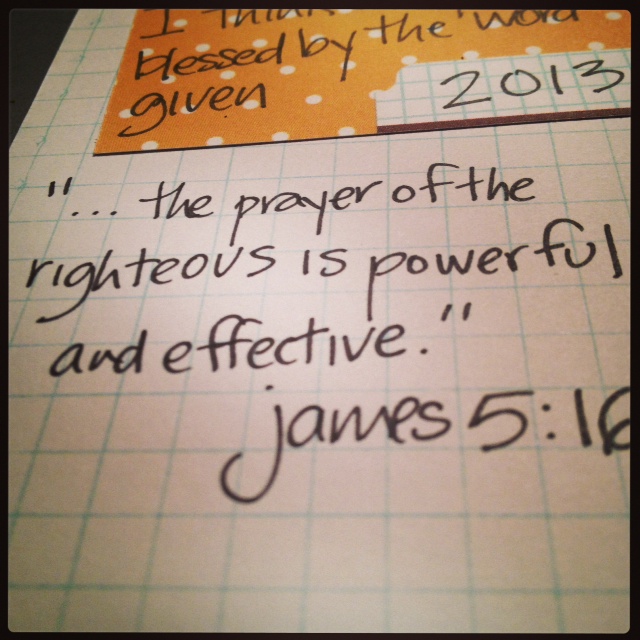 I think
blessed by the "word
given
2013
"... the prayer of the
righteous is powerful
and effective."
james 5:16